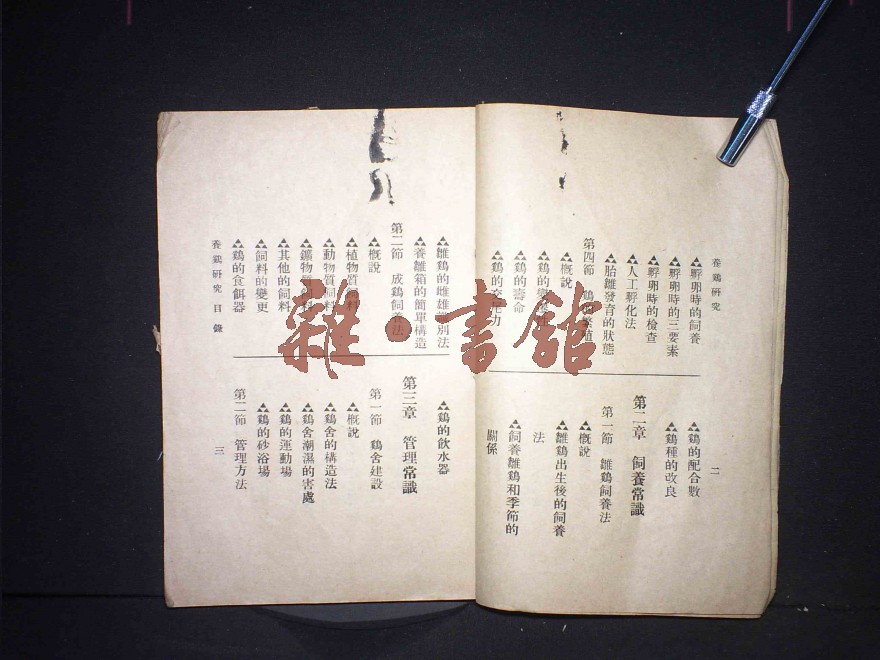 養鷄研究
二
孵卵時的飼養
孵卵時的三要素
孵卵時的檢查
人工孵化法
胎雛發育的狀態
第四節 鷄的繁殖
概說
鷄的
鷄的壽命
鷄的力
鷄的配合數
鷄種的改良
第二章 飼養常識
第一節 雛鷄飼養法
概說
雛鷄出生後的飼養
法
飼養雛鷄和季節的
關係
雛鷄的雌雄鑑別法
養雛箱的簡單構造
第二節 成鷄飼養法
概說
植物質飼料
動物質飼料
鑛物質飼料
其他的飼料
飼料的變更
鷄的食餌器
鷄的飲水器
第三章 管理常識
第一節 鷄舍建設
概說
鷄舍的構造法
鷄舍潮濕的害處
鷄的運動場
鷄的砂浴場
第二節 管理方法
養鷄研究 目錄
三
雜·書館